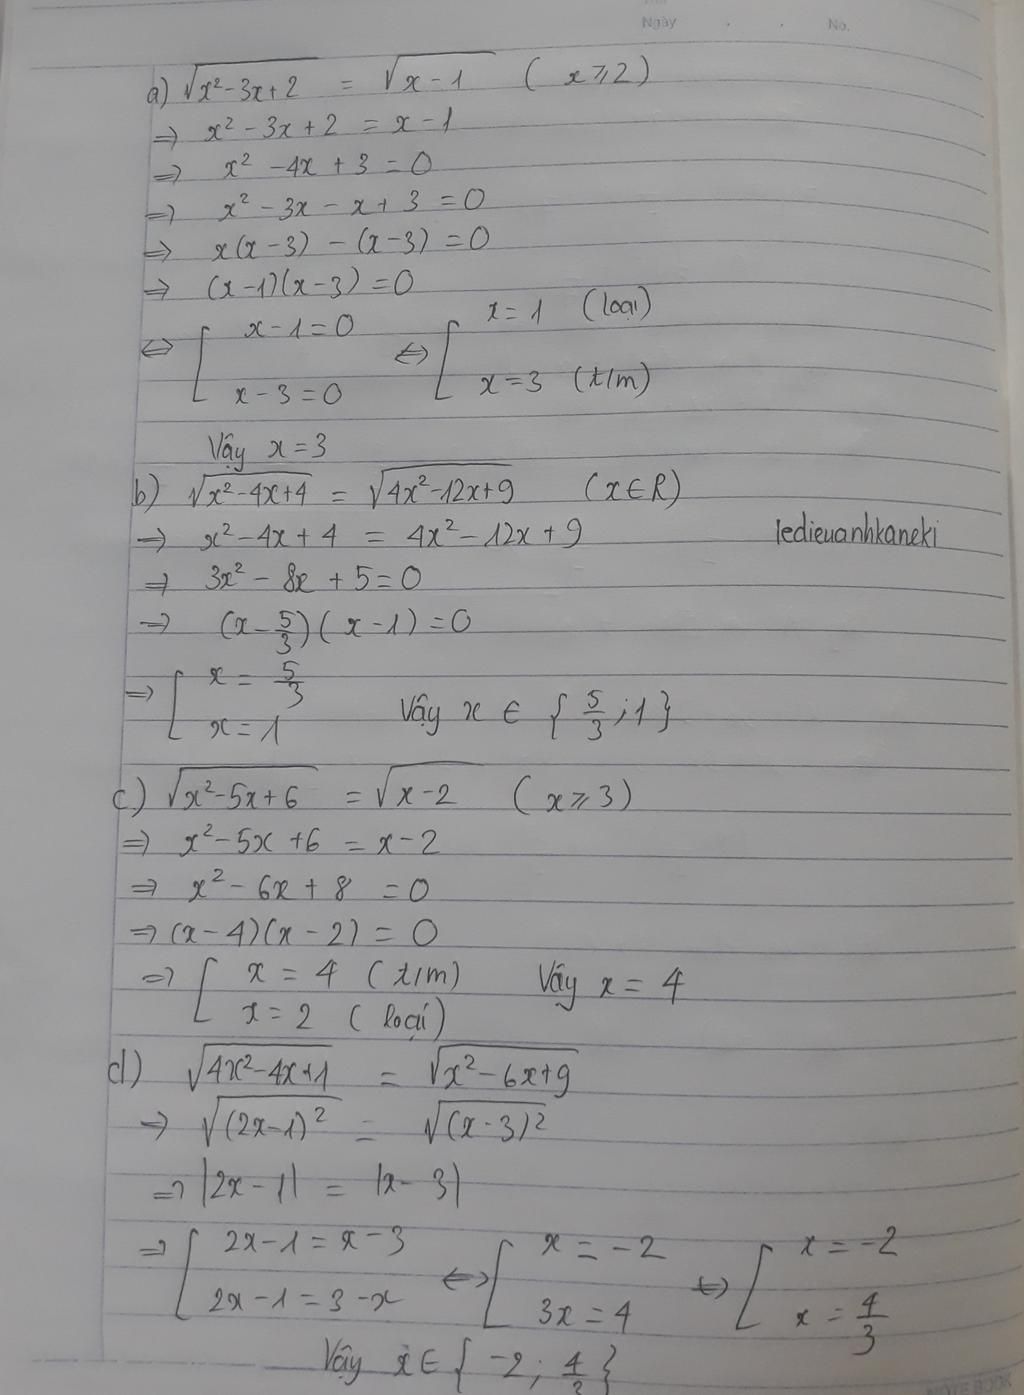 Ngày . . No.
a) √(x²-3x+2) = √(x-1) ( x ⩾ 2 )
⇒ x² - 3x + 2 = x - 1
⇒ x² - 4x + 3 = 0
⇒ x² - 3x - x + 3 = 0
⇒ x(x-3) - (x-3) = 0
⇒ (x-1)(x-3) = 0
⇔ [ x-1=0 ⇔ [ x=1 (loại)
x-3=0 x=3 (t/m)
Vậy x = 3
b) √(x²-4x+4) = √(4x²-12x+9) (x∈R)
⇒ x²-4x+4 = 4x²-12x+9 ledieuanhkaneki
⇒ 3x² - 8x + 5 = 0
⇒ (x-5/3)(x-1) = 0
⇒ [ x = 5/3
x = 1 Vậy x ∈ {5/3;1}
c) √(x²-5x+6) = √(x-2) (x⩾3)
⇒ x²-5x+6 = x-2
⇒ x² - 6x + 8 = 0
⇒ (x-4)(x-2) = 0
⇒ [ x = 4 (t/m) Vậy x = 4
x = 2 (loại)
d) √(4x²-4x+1) = √(x²-6x+9)
⇒ √((2x-1)²) = √((x-3)²)
⇒ |2x-1| = |x-3|
⇒ [ 2x-1=x-3 ⇔ [ x=-2 ⇔ [ x=-2
2x-1=3-x 3x=4 x=4/3
Vậy x∈{-2; 4/3}